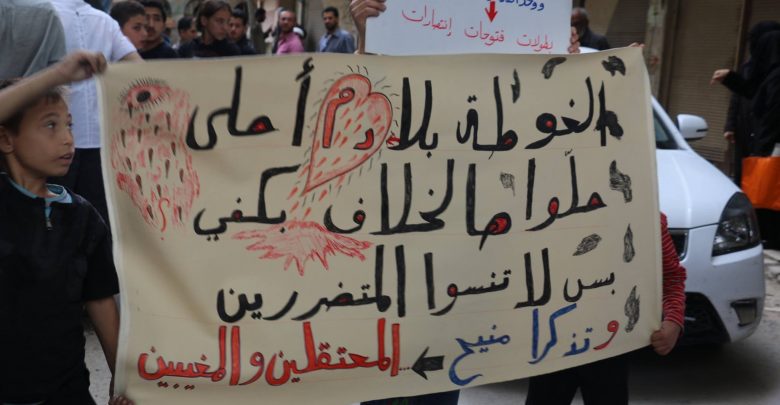 ووحدا
بطولات فتوحات إنتصارات
الغوطة بلا دم أحلى
حلّوا هالخلاف بكفي
بس لا تنسوا المتضررين
و تذكرا منيح ← المعتقلين والمغيبين